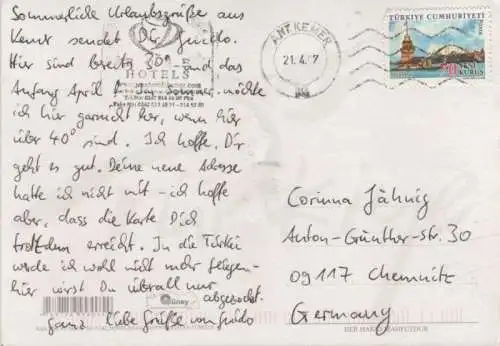 Sommerliche Urlaubsgrüße aus
Kemer sendet Dir Guido.
Hier sind bereits 30° und das
HOTELS
Anfang April. In der Sommer möchte
ich hier garnicht her, wenn hier
über 40° sind. Ich hoffe, Dir
geht es gut. Deine neue Adresse
hatte ich nicht mit - ich hoffe
aber, dass die Karte Dich
trotzdem erreicht. In die Türkei
werde ich wohl nicht mehr fliegen-
hier wirst Du überall nur
abgezockt.
Ganz liebe Grüße von Guido
Güney
ANT.KEMER
21.4.7
TÜRKİYE CUMHURİYETİ
70 YENİ
KURUŞ
Corinna Jähnig
Anton-Günther-Str. 30
09117 Chemnitz
Germany
HER HAKKI MAHFUZDUR